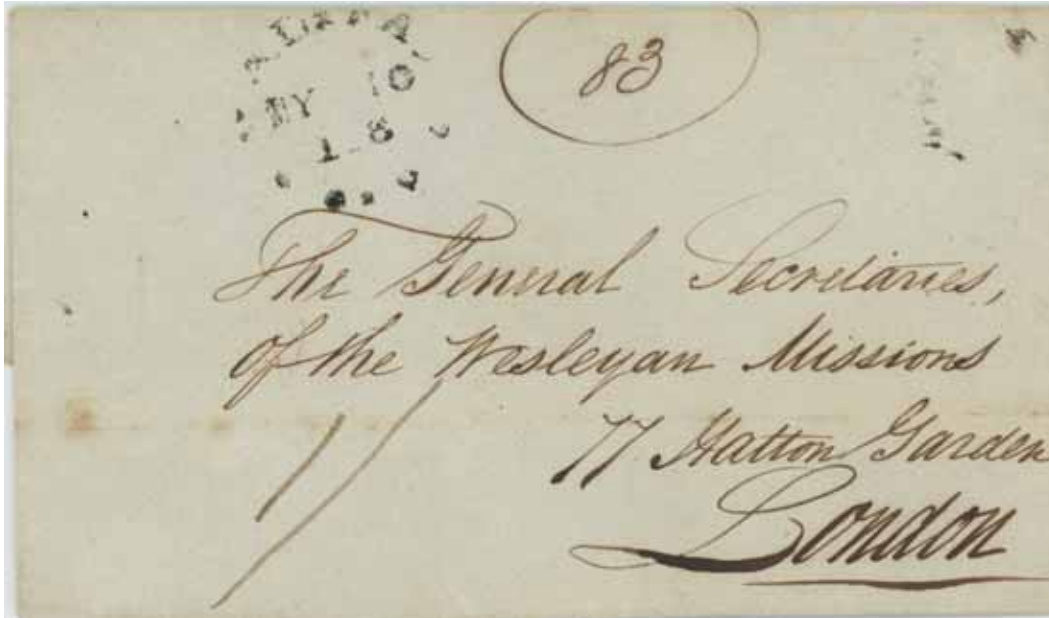 83
MY 10
The General Secretaries,
of the Wesleyan Missions
77 Hatton Garden
London